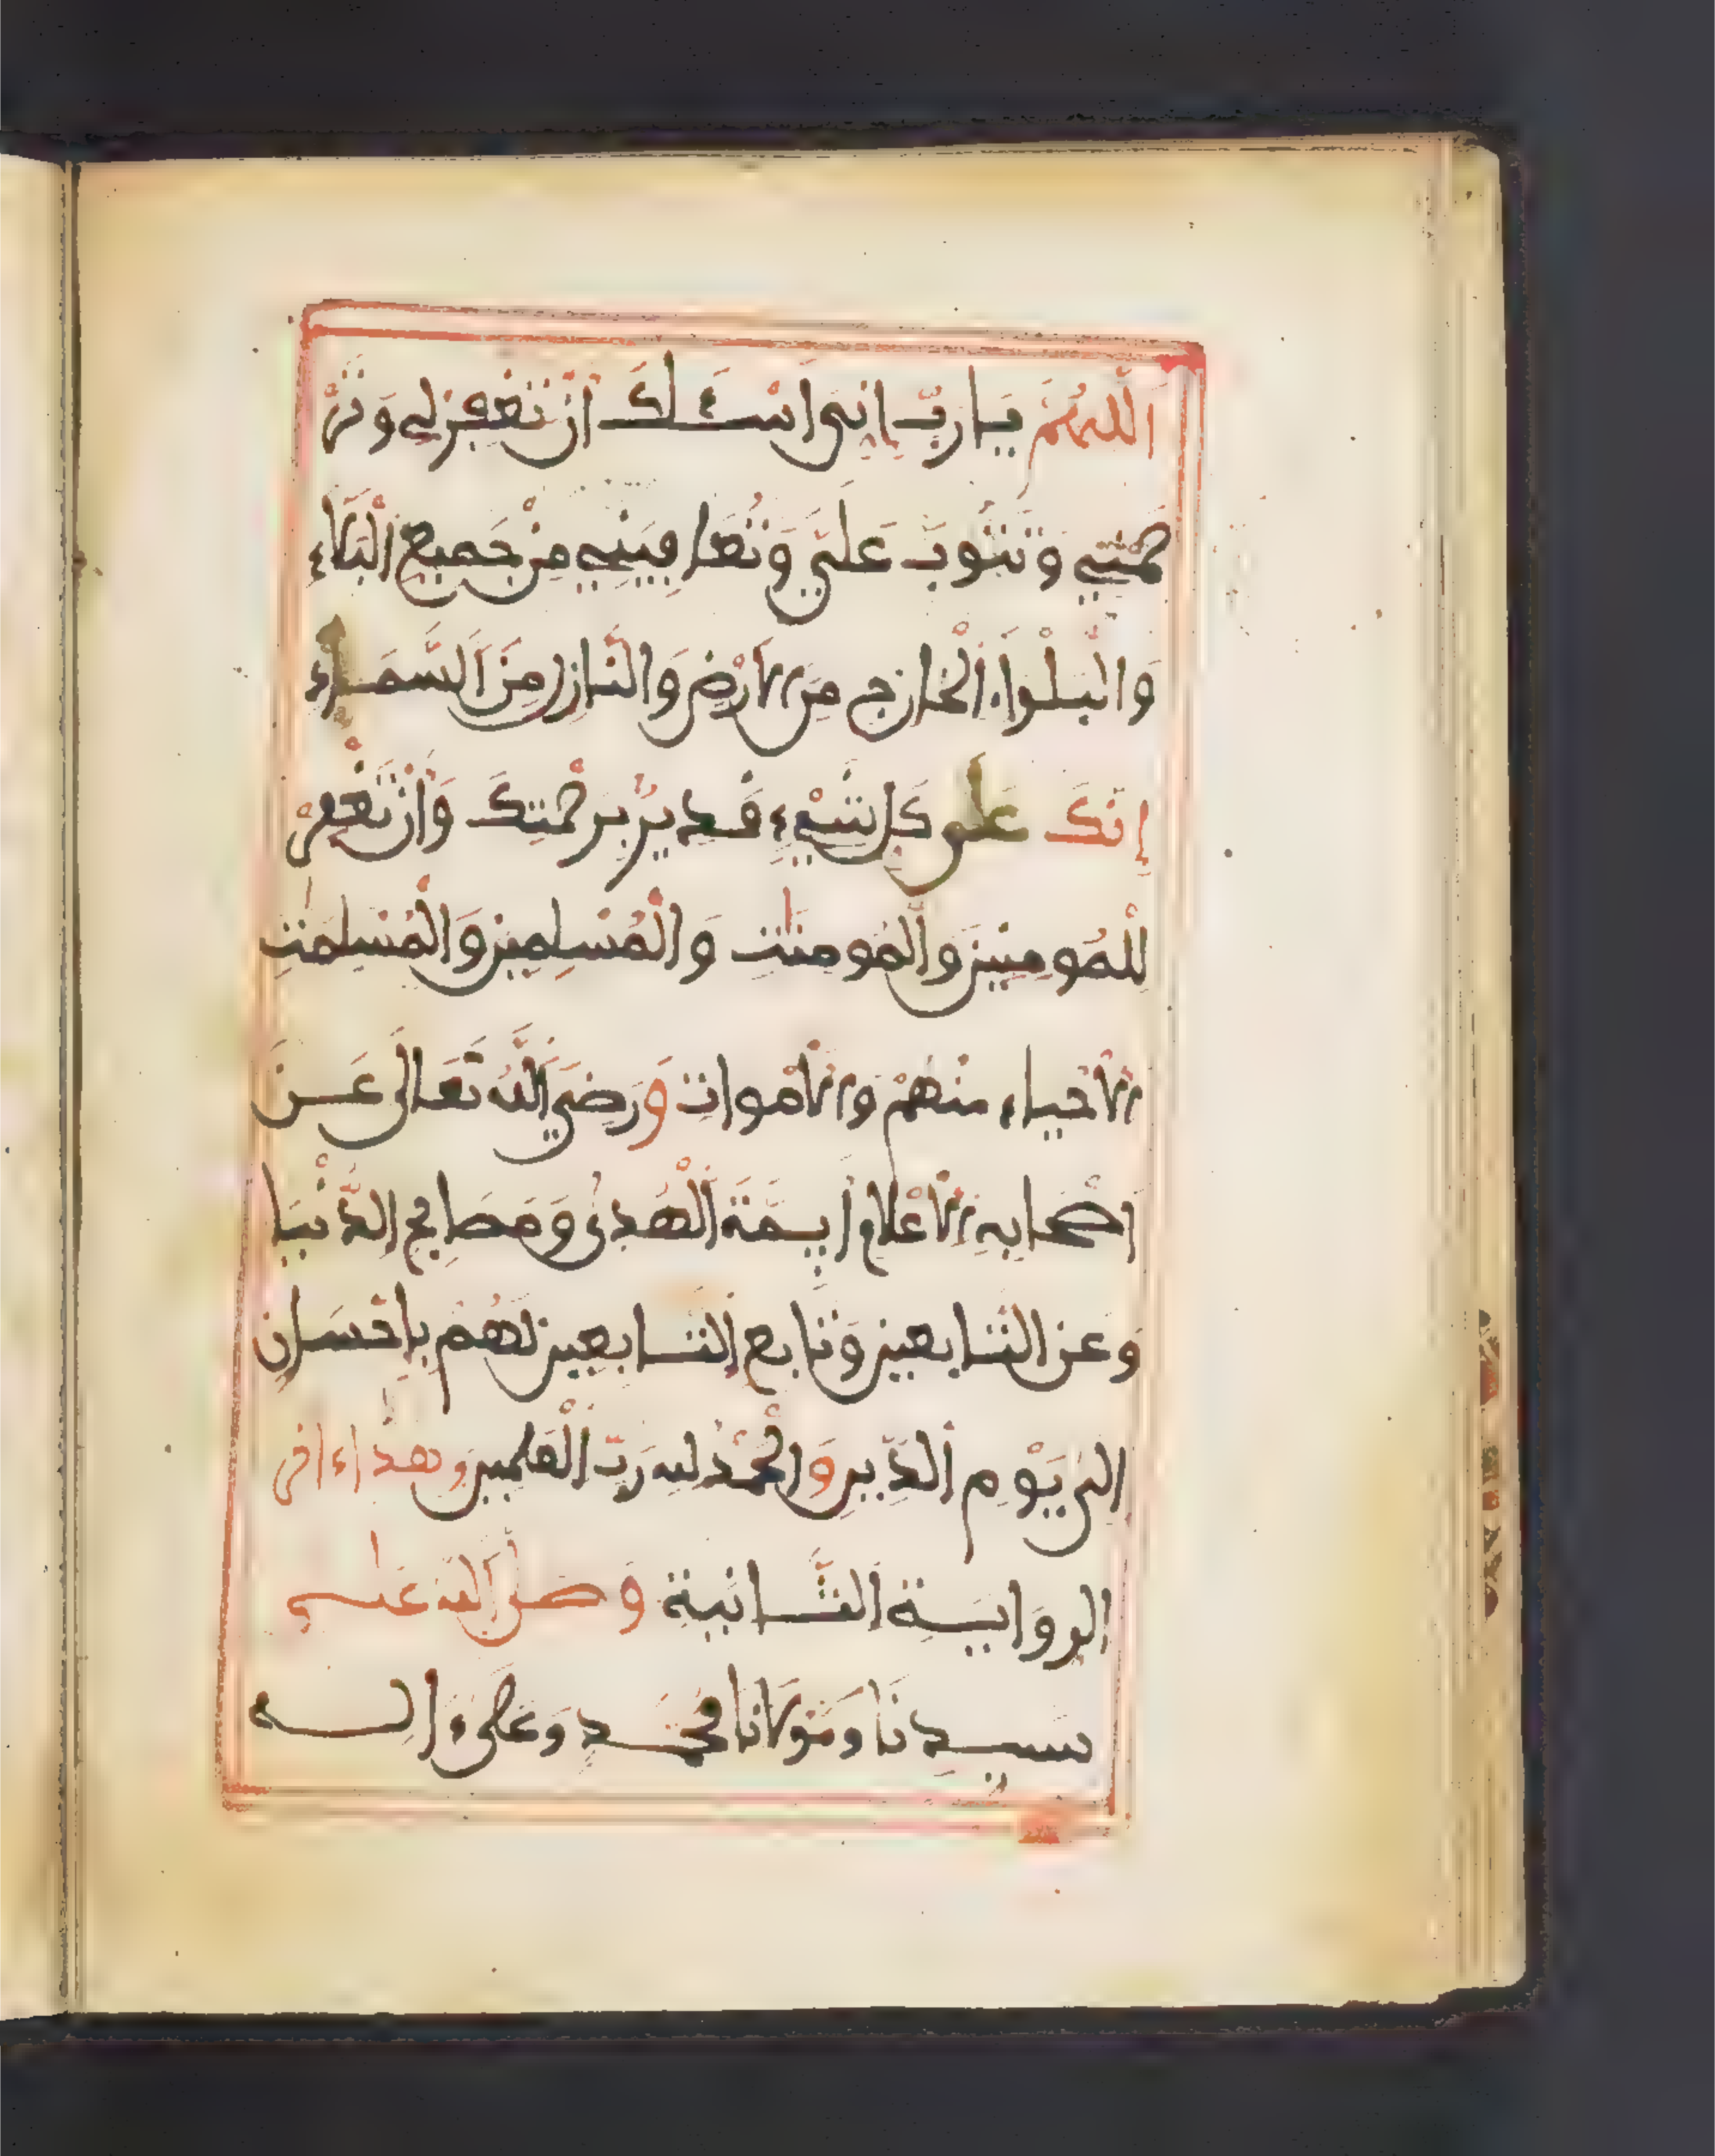 اللَّهُمَّ يَا رَبِّ إِنِّي أَسْئَلُكَ أَنْ تَغْفِرَ لِي وَتَرْ
حَمَنِي وَتَتُوبَ عَلَيَّ وَتُعَافِيَنِي مِنْ جَمِيعِ الْبَلَاءِ
وَالْبَلْوَاءِ الْخَارِجِ مِنَ الْأَرْضِ وَالنَّازِلِ مِنَ السَّمَاءِ
إِنَّكَ عَلَى كُلِّ شَيْءٍ قَدِيرٌ بِرَحْمَتِكَ وَأَنْ تَغْفِرْ
لِلْمُومِنِينَ وَالْمُومِنَٰتِ وَالْمُسْلِمِينَ وَالْمُسْلِمَٰتِ
الْأَحْيَاءِ مِنْهُمْ وَالْأَمْوَاتِ وَرَضِيَ اللَّهُ تَعَالَى عَنْ
أَصْحَابِهِ الْأَعْلَامِ أَيِمَّةِ الْهُدَىٰ وَمَصَابِحِ الدُّنْيَا
وَعَنِ التَّابِعِينَ وَتَابِعِ التَّابِعِينَ لَهُمْ بِإِحْسَانٍ
إِلَى يَوْمِ الدِّينِ وَالْحَمْدُ لِلَّهِ رَبِّ الْعَٰلَمِينَ وهذا ءاخر
الروَايَةِ الثَّانِيَةِ وَصَلَّى اللَّهُ عَلَى
سَيِّدِنَا وَمَوْلَانَا مُحَمَّدٍ وَعَلَى ءَالِهِ